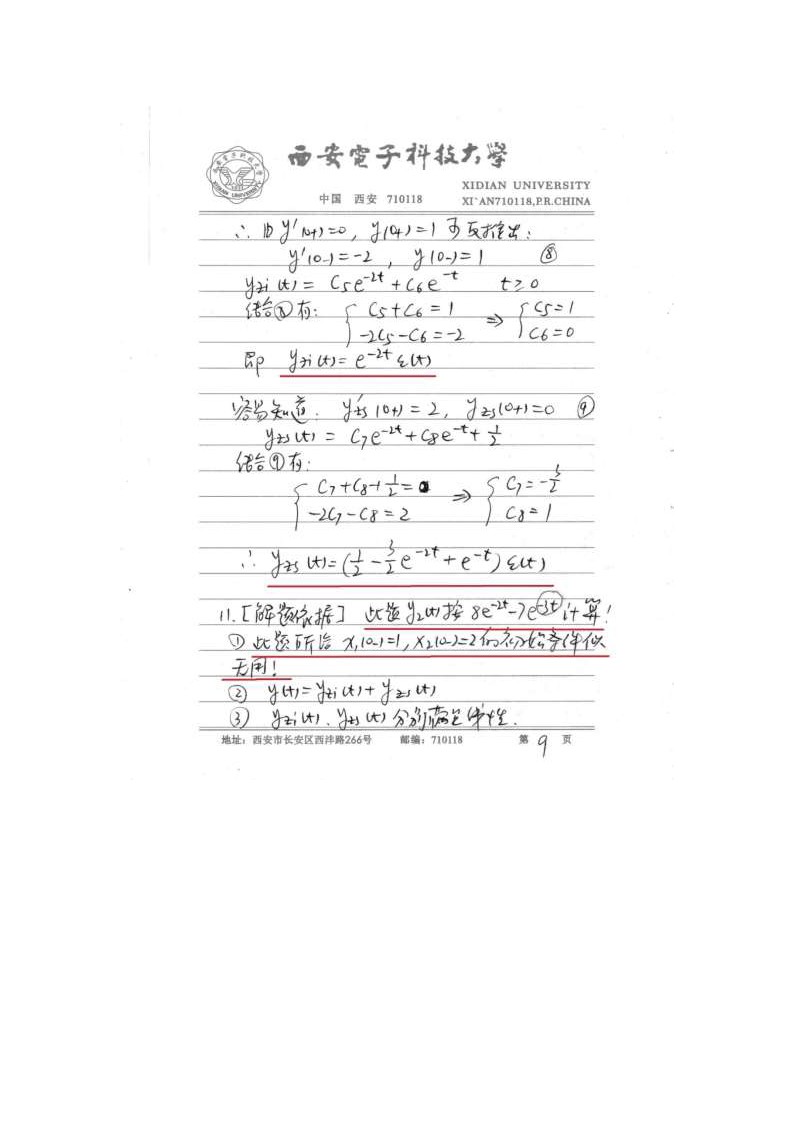 西安電子科技大學
XIDIAN UNIVERSITY
中国 西安 710118 XI`AN710118,P.R.CHINA
∴ 由 y'(0+)=0, y(0+)=1 可反推出:
y'(0-)=-2 , y(0-)=1 ⑧
yzi(t) = C5e^-2t + C6e^-t t≥0
结合⑧有: { C5+C6=1 ⇒ { C5=1
-2C5-C6=-2 C6=0
即 yzi(t)=e^-2t ε(t)
容易知道: y'zs(0+)=2, yzs(0+)=0 ⑨
yzs(t) = C7e^-2t+C8e^-t+1/2
结合⑨有:
{ C7+C8+1/2=0 ⇒ { C7=-3/2
-2C7-C8=2 C8=1
∴ yzs(t)=(1/2-3/2e^-2t+e^-t)ε(t)
11.[解题依据] 此题y2(t)按 8e^-2t-7e^-3t 计算!
① 此题所给 x1(0-)=1, x2(0-)=2的初始条件似
无用!
② y(t)=yzi(t)+yzs(t)
③ yzi(t)、yzs(t)分别满足线性.
地址: 西安市长安区西沣路266号 邮编: 710118 第 9 页